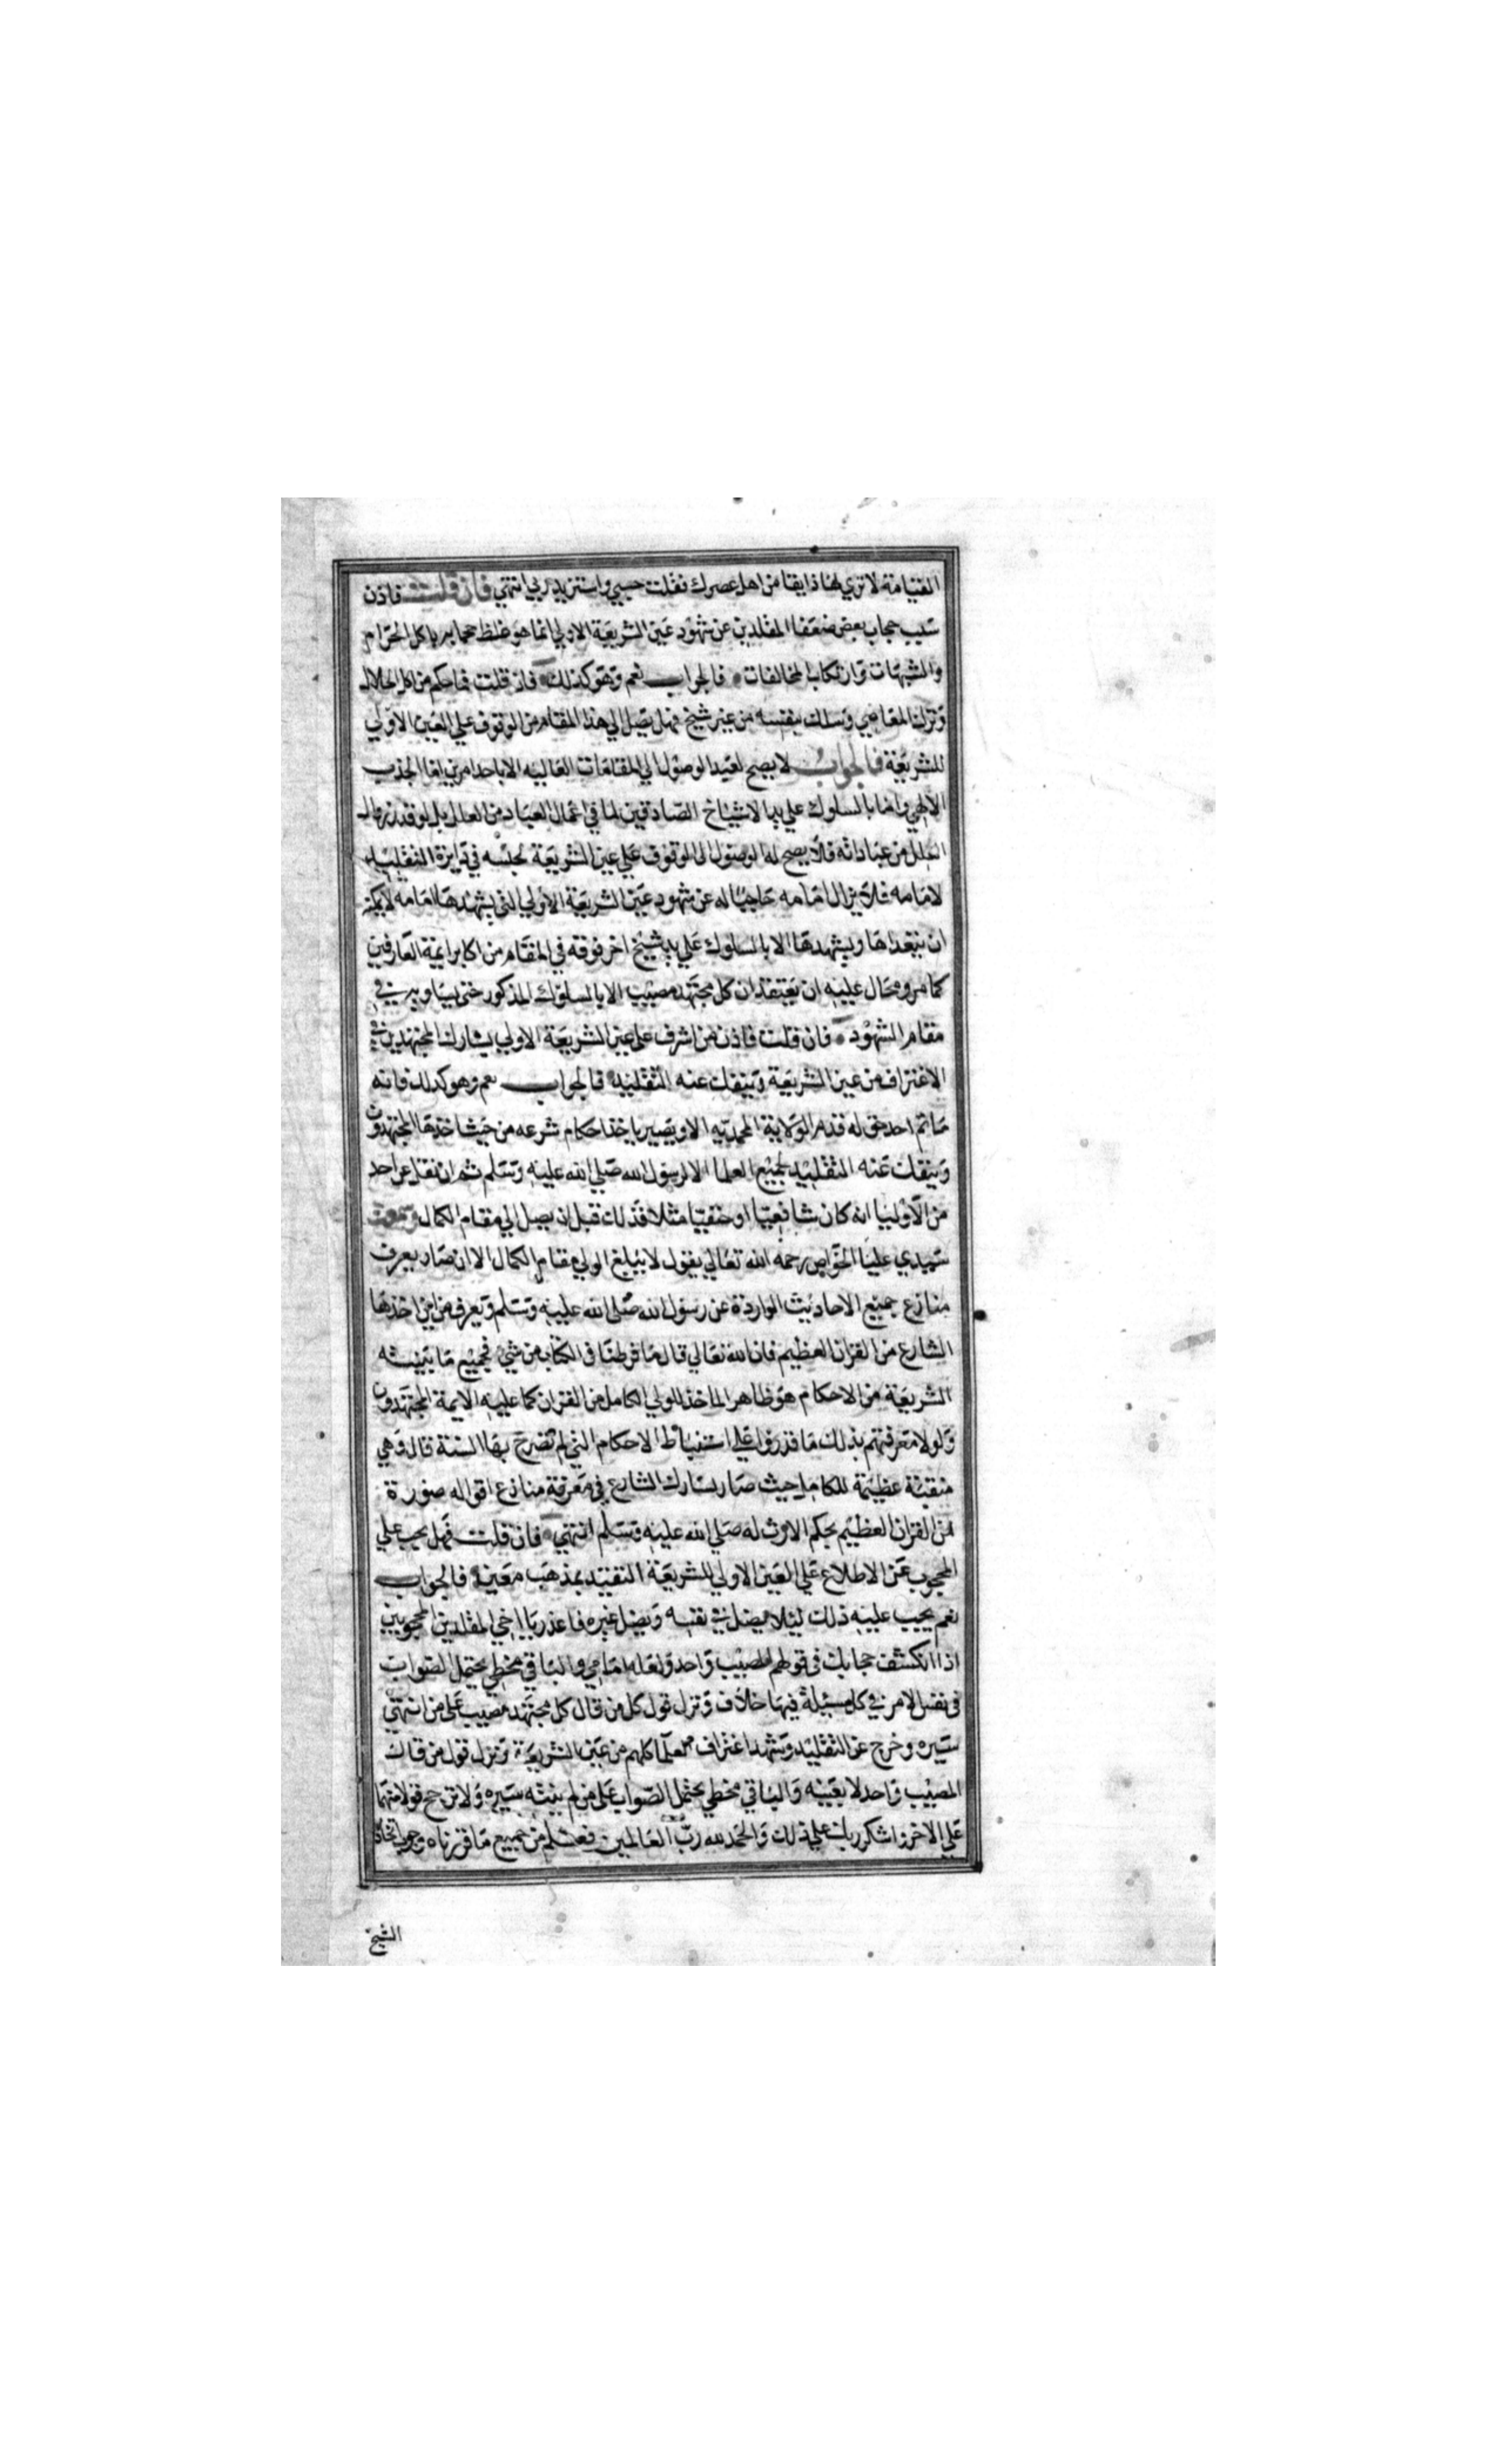 القيامة لا تري لها ذايقا من اهل عصرك فقلت حسبي واستزيد ربي انتهي فان قلت فاذن
سبب حجاب بعض ضعفا المقلدين عن شهود عين الشريعة الاولي انما هو غلظ حجابهم باكل الحرام
والشبهات وارتكاب المخالفات فالجواب نعم وهو كذلك فان قلت فما حكم من اكل الحلال
وترك المعاصي وسلك بنفسه من غير شيخ فهل يصل الي هذا المقام من الوقوف علي العين الاولي
للشريعة فالجواب لا يصح لعبد الوصول الي المقامات العاليه الا باحد امرين اما الجذب
الالهي واما بالسلوك علي يد الاشياخ الصادقين لما في اعمال العباد من العلل بل لو قدر زوال
العلل من عباداته فلا يصح له الوصول الي الوقوف علي عين الشريعة لحبسه في دايرة التقليد
لامامه فلا يزال امامه حاجبا له عن شهود عين الشريعة الاولي التي يشهدها امامه لا يمكنه
ان يتعداها ويشهدها الا بالسلوك علي يد شيخ اخر فوقه في المقام من اكابر ايمة العارفين
كما مر ومحال عليه ان يعتقد ان كل مجتهد مصيب الا بالسلوك المذكور حتي يساويهم في
مقام الشهود فان قلت فاذن من اشرف علي عين الشريعة الاولي يشارك المجتهدين في
الاغتراف من عين الشريعة وينفك عنه التقليد فالجواب نعم وهو كذلك فانه
ما ثم احد حق له قدم الولاية المحمديه الا ويصير ياخذ احكام شرعه من حيث اخذها المجتهدون
وينفك عنه التقليد لجميع العلما الا لرسول الله صلي الله عليه وسلم ثم ان نقل عن احد
من الاوليا انه كان شافعيا او حنفيا مثلا فذلك قبل ان يصل الي مقام الكمال وسمعت
سيدي عليا الخواص رحمه الله تعالي يقول لا يبلغ الولي مقام الكمال الا ان صار يعرف
منازع جميع الاحاديث الواردة عن رسول الله صلي الله عليه وسلم ويعرف من اين اخذها
الشارع من القران العظيم فان الله تعالي قال ما فرطنا في الكتاب من شي فجميع ما بينته
الشريعة من الاحكام هو ظاهر الماخذ للولي الكامل من القران كما عليه الايمة المجتهدون
ولولا معرفتهم بذلك ما قدروا علي استنباط الاحكام التي لم تصرح بها السنة قال وهي
منقبة عظيمة للكامل حيث صار يشارك الشارع في معرفة منازع اقواله صورة
من القران العظيم بحكم الارث له صلي الله عليه وسلم انتهي فان قلت فهل يجب علي
المحجوب عن الاطلاع علي العين الاولي للشريعة التقيد بمذهب معين فالجواب
نعم يجب عليه ذلك ليلا يضل في نفسه ويضل غيره فاعذر يا اخي المقلدين المحجوبين
اذا انكشف حجابك في قولهم المصيب واحد ولعله امامي والباقي مخطي يحتمل الصواب
في نفس الامر في كل مسيلة فيها خلاف ونزل قول كل من قال كل مجتهد مصيب علي من انتهي
سيره وخرج عن التقليد وشهد اغتراف العلما كلهم من عين الشريعة ونزل قول من قال
المصيب واحد لا بعينه والباقي مخطي يحتمل الصواب علي من لم ينته سيره ولا ترجح قولا منهما
علي الاخر واشكر ربك علي ذلك والحمد لله رب العالمين فعلم من جميع ما قررناه وجوب اتخاذ
الشيخ